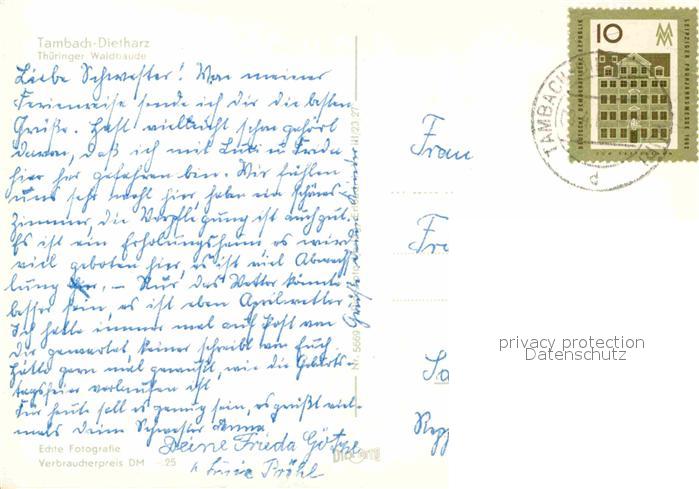 Tambach-Dietharz
Thüringer Waldbaude
Liebe Schwester! Von meiner
Ferienreise sende ich dir die besten
Grüße. Hast vielleicht schon gehört
davon, daß ich mit Luzi u. Frieda
hier her gefahren bin. Wir fühlen
uns sehr wohl hier, haben ein schönes
Zimmer, die Verpflegung ist auch gut.
Es ist ein Erholungsheim es wird
viel geboten hier, es ist viel Abwechs
lung hier, – Nur das Wetter könnte
besser sein, es ist eben Aprilwetter.
Ich hatte immer mal auf Post von
Dir gewartet, keiner schreibt von Euch
hätte gern mal gewußt, wie die Geburts-
tagsfeier verlaufen ist
Für heute soll es genug sein, es grüßt viel-
mals Deine Schwester Anna
Deine Frieda
Echte Fotografie
Verbraucherpreis DM -25
Nr. 5669
Frau
10
MM
DEUTSCHE DEMOKRATISCHE REPUBLIK
LEIPZIGER FRÜHJAHRSMESSE
TAMBACH
d
privacy protection
Datenschutz